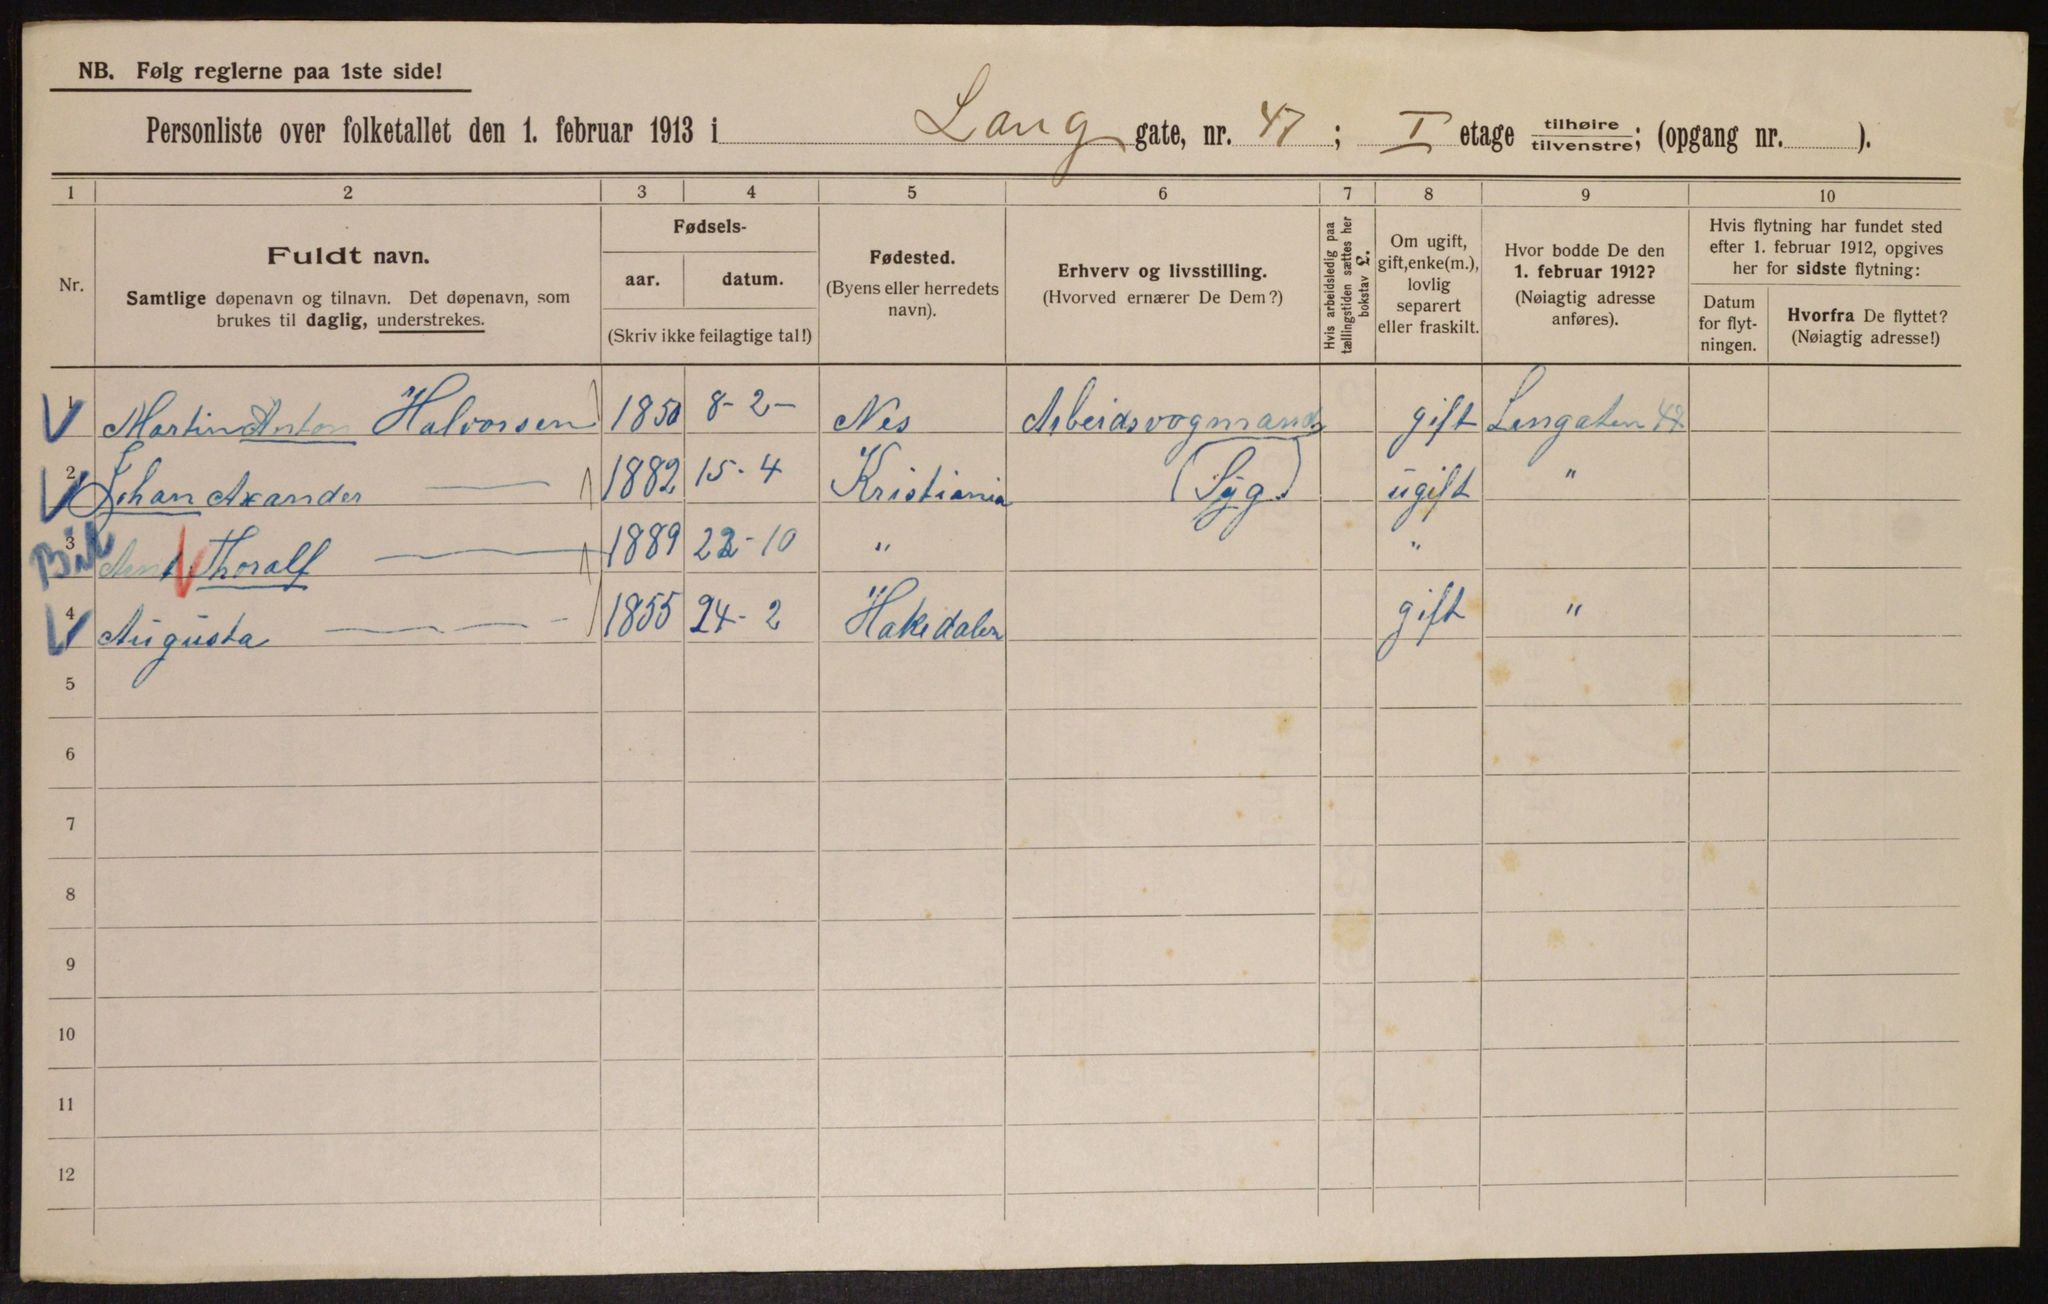 NB. Følg reglerne paa 1ste side!
Personliste over folketallet den 1. februar 1913 i Lang gate, nr. 47; I etage tilhøire/tilvenstre; (opgang nr. ).
1 2 3 4 5 6 7 8 9 10
Nr.
Fuldt navn.
Samtlige døpenavn og tilnavn. Det døpenavn, som
brukes til daglig, understrekes.
Fødsels-
aar. datum.
(Skriv ikke feilagtige tal!)
Fødested.
(Byens eller herredets
navn).
Erhverv og livsstilling.
(Hvorved ernærer De Dem?)
Hvis arbeidsledig paa
tællingstiden sættes her
bokstav L.
Om ugift,
gift, enke(m.),
lovlig
separert
eller fraskilt.
Hvor bodde De den
1. februar 1912?
(Nøiagtig adresse
anføres).
Hvis flytning har fundet sted
efter 1. februar 1912, opgives
her for sidste flytning:
Datum
for flyt-
ningen.
Hvorfra De flyttet?
(Nøiagtig adresse!)
1 Martin Anton Halvorsen 1850 8-2- Nes Arbeidsvogmand gift Langaten 47
2 Johan Axander — 1882 15-4 Kristiania (Syg) ugift "
3 Thoralf — 1889 22-10 " "
4 Augusta — 1855 24-2 Hakedalen gift "
5
6
7
8
9
10
11
12